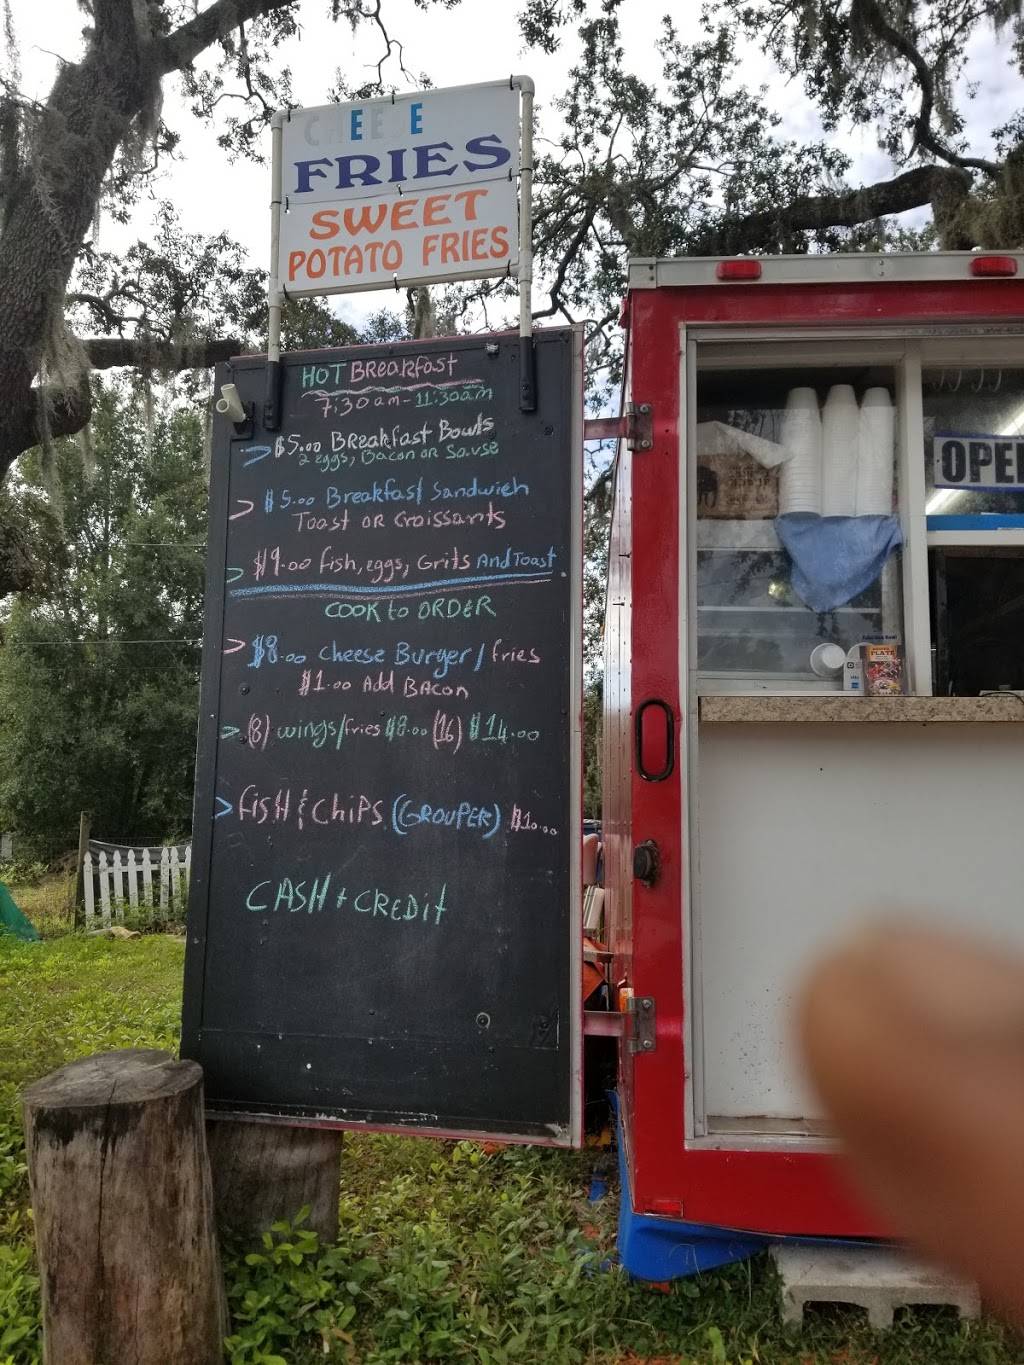 CHEESE
FRIES
SWEET
POTATO FRIES
HOT BReakfast
7:30am-11:30am
> $5.00 BReakfast Bowls
2 eggs, Bacon OR Sause
> $5.00 Breakfast Sandwich
Toast OR Croissants
> $9.00 fish, eggs, Grits And Toast
COOK to ORDER
> $8.00 cheese Burger/fries
$1.00 Add BAcon
> (8) wings/fries $8.00 (16) $14.00
> fisH & ChiPs (GROUPER) $10.00
CASH + CREDit
OPEN